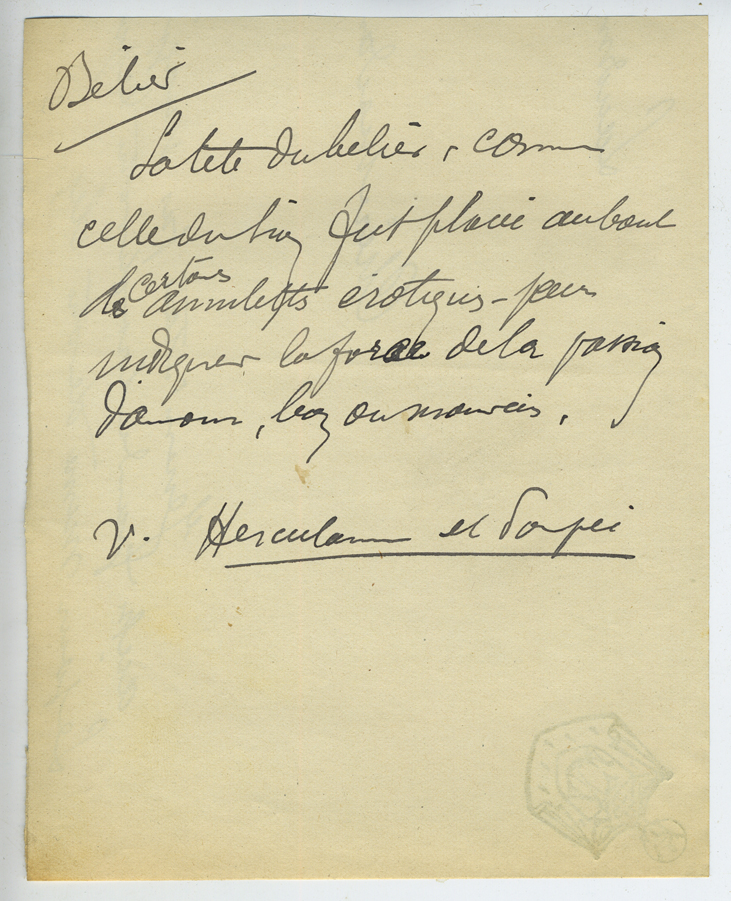 Bélier
La tête du bélier, comme
celle du lion fut placée au bout
de certains amulettes érotiques - pour
indiquer la force de la passion
d'amour, bon ou mauvais.
V. Herculanum et Pompei